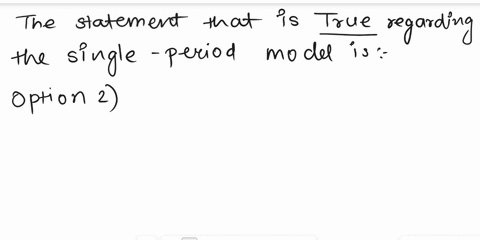 The statement that is True regarding
the single-period model is:-
Option 2)